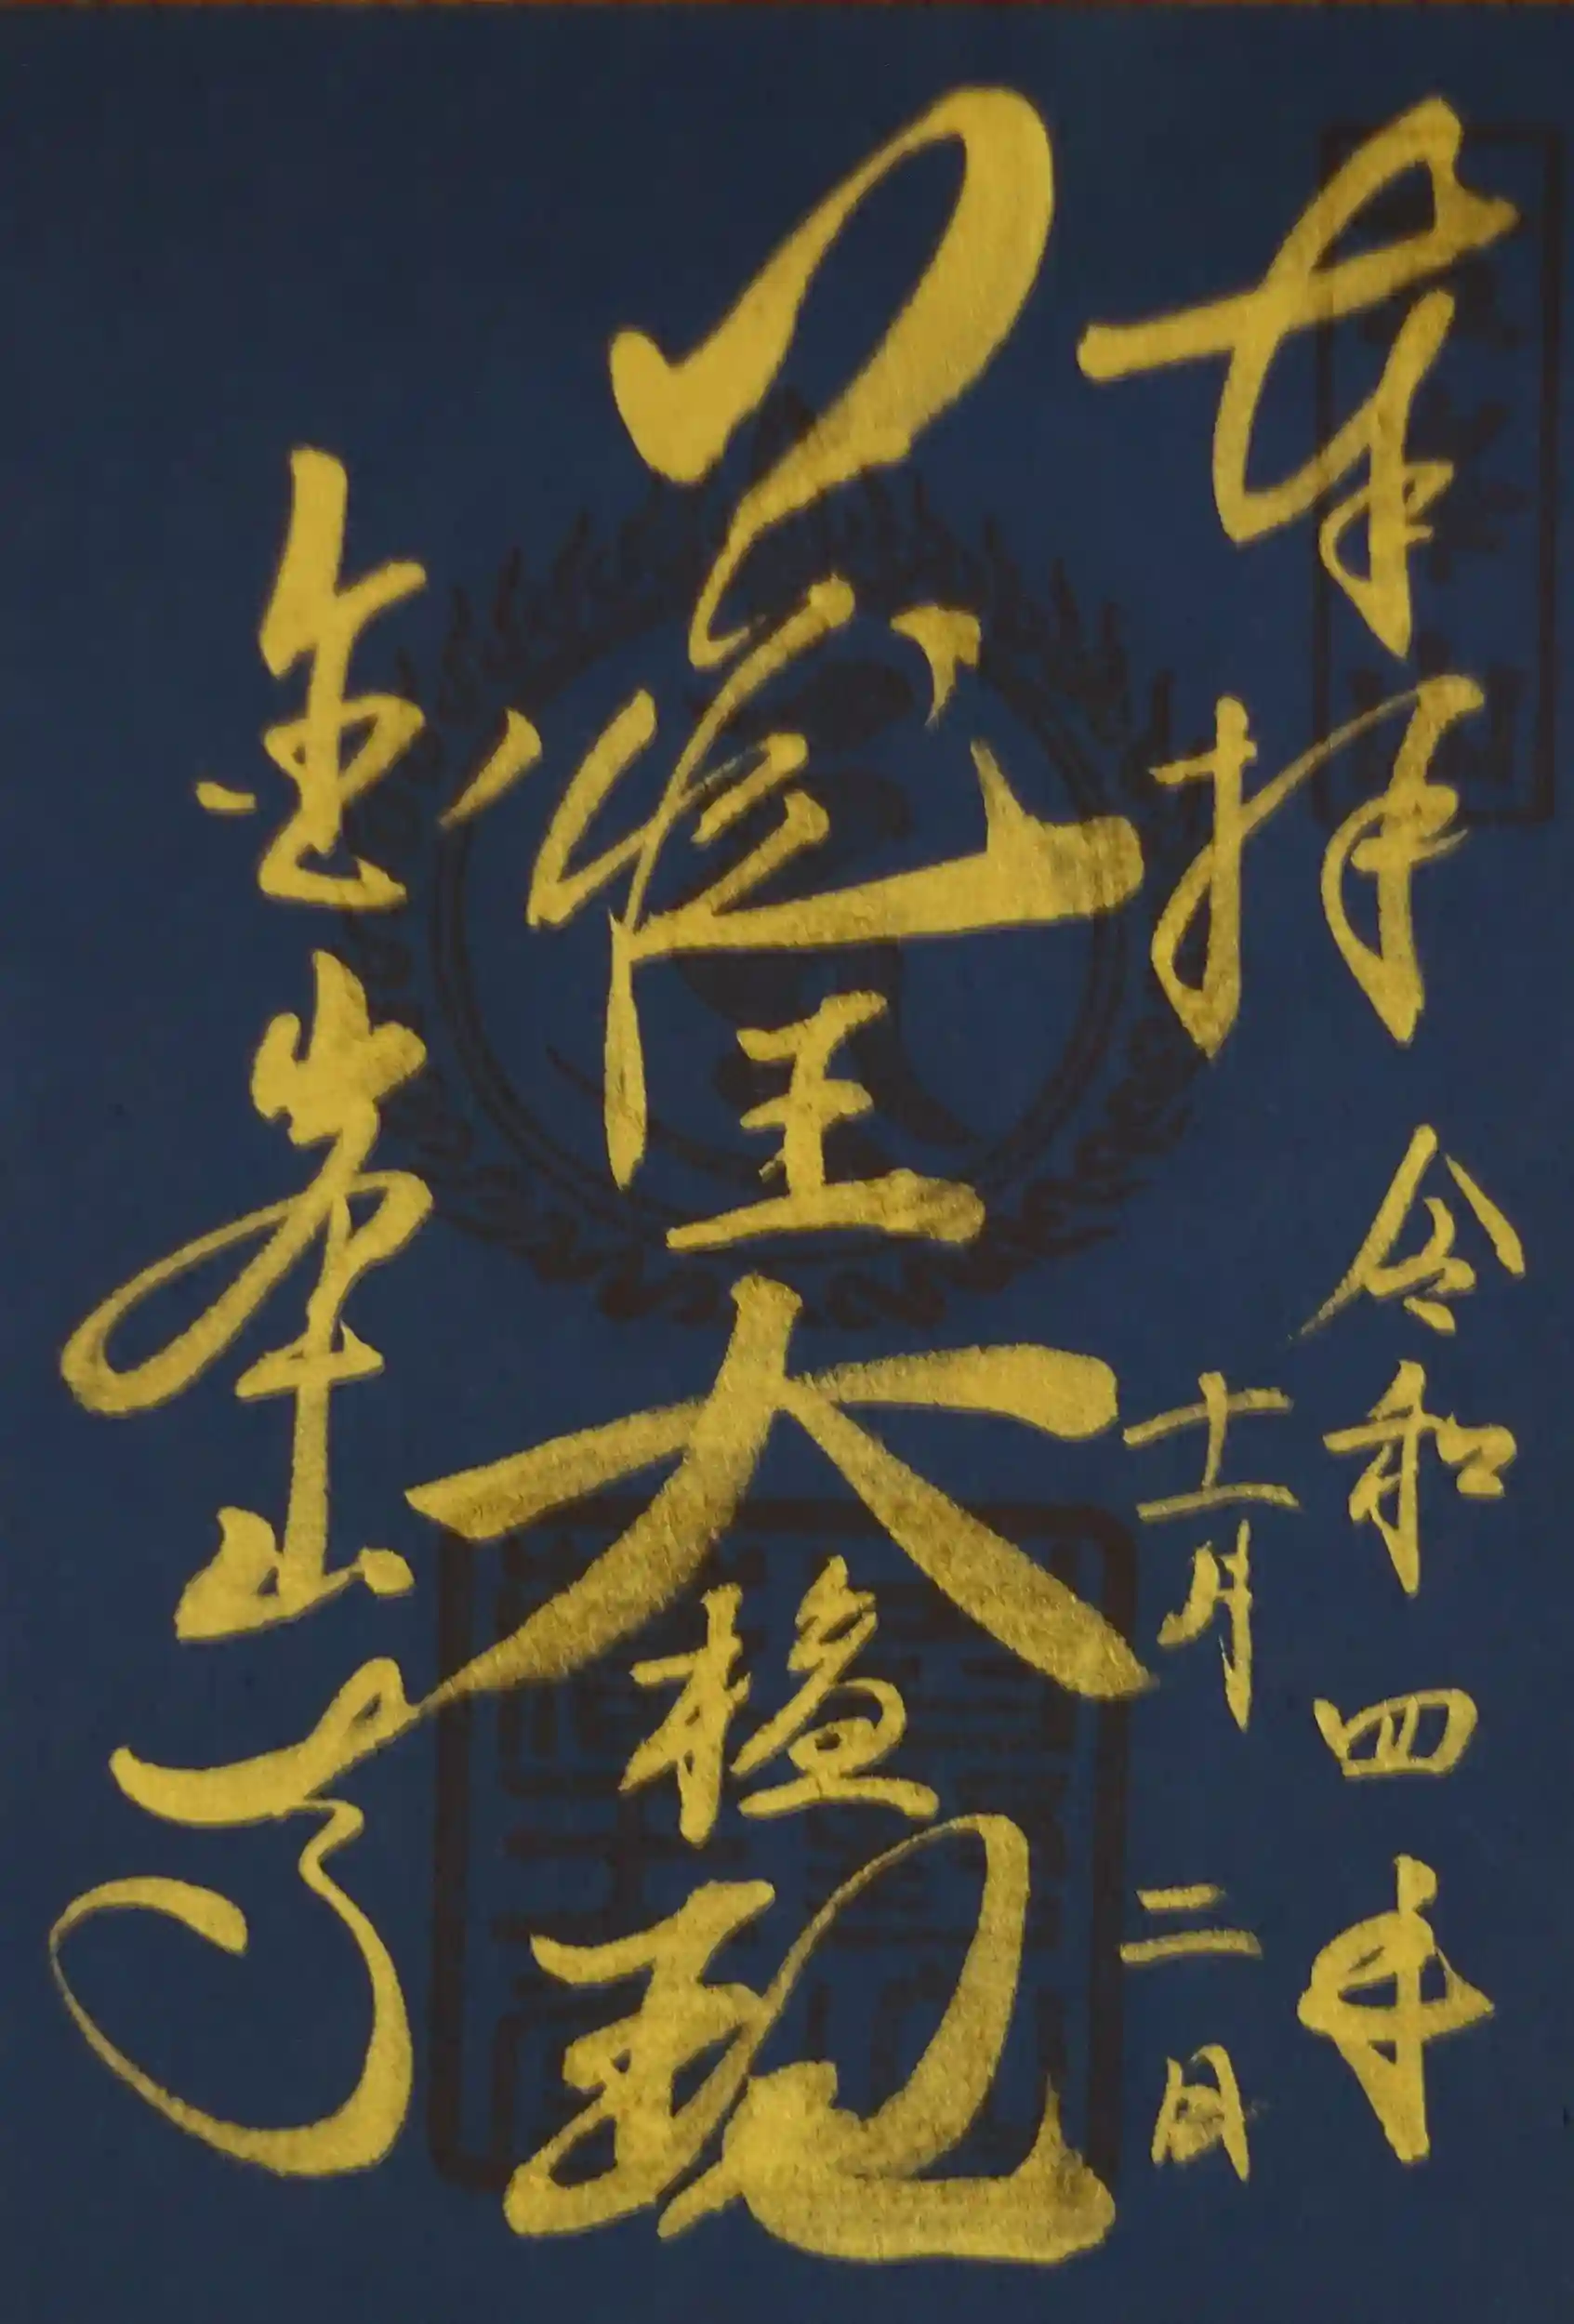 奉拝 令和四年
十一月二日
蔵王大権現
金峯山寺